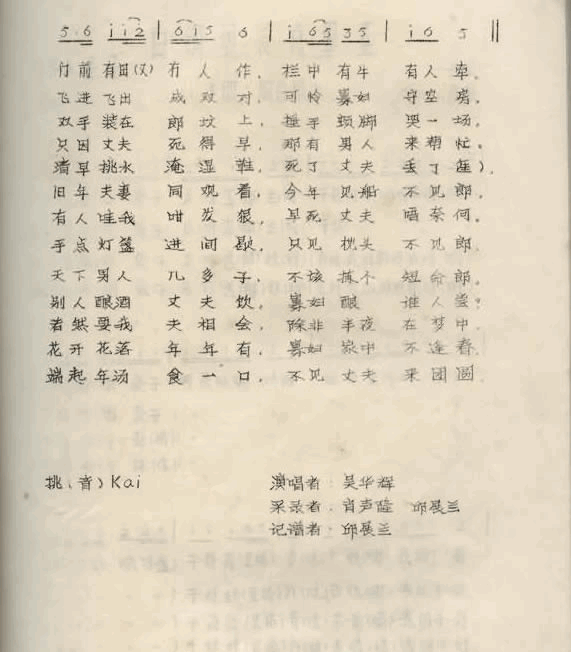 5·6 i i2 | 6i5 6 | i 65 35 | i 6 5 ‖
门前有田(又) 有人作，栏中有牛 有人牵。
飞进飞出 成双对，可怜寡妇 守空房，
双手装在 郎坟上，捶手顿脚 哭一场。
只因丈夫 死得早，那有男人 来帮忙。
清早挑水 淹湿鞋，死了丈夫 丢了 )，
旧年夫妻 同观看，今年见船 不见郎，
有人 我 咁发狠，早死丈夫 唱奈何。
手点灯盏 进间 ，只见枕头 不见郎，
天下男人 几多子，不该拣个 短命郎。
别人酿酒 丈夫饮，寡妇酿 谁人尝？
若然要我 夫相会，除非半夜 在梦中。
花开花落 年年有，寡妇家中 不逢春。
端起年汤 食一口，不见丈夫 来团圆
挑、(音) Kai
演唱者：吴华辉
采录者：肖声隆 邱展兰
记谱者：邱展兰